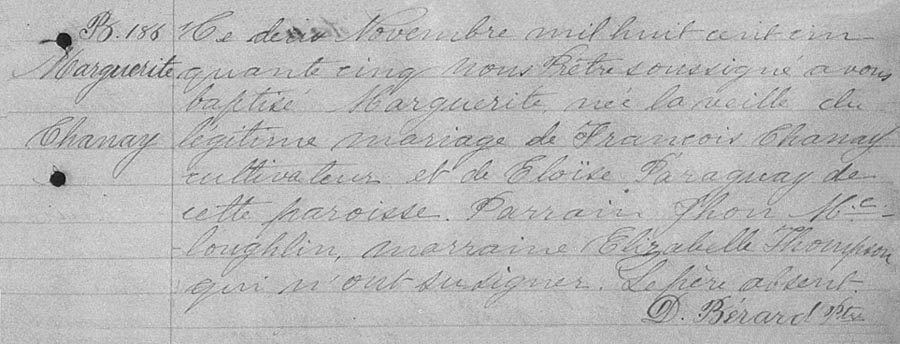 B. 186 Le deux Novembre mil huit cent cin-
Marguerite quante cinq Nous Prêtre soussigné avons
baptisé Marguerite, née la veille du
Chanay légitime mariage de François Chanay
cultivateur et de Eloïse Paraguay de
cette paroisse. Parrain Jhon Mc.
loughlin, marraine Elizabelle Thompson
qui n'ont su signer. Le père absent.
D. Bérard Ptre